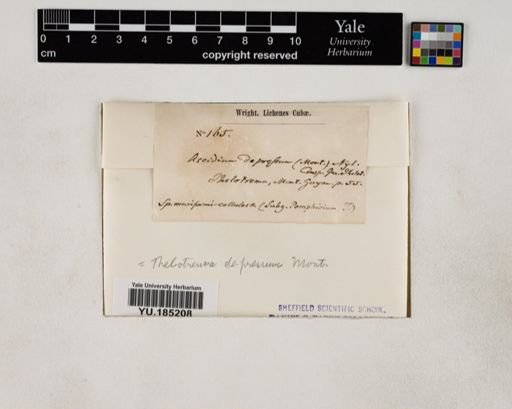 0 1 2 3 4 5 6 7 8 9 10
cm
copyright reserved
Yale
University
Herbarium
Wright. Lichenes Cubæ.
No 165.
Ascidium depressum (Mont.) Nyl.
Comp. Gen. Thelot.
Thelotrema, Mont. Guyan. p. 55.
Sp. muriformi-cellulosa (Subg. Pomphidium
= Thelotrema depressum Mont.
Yale University Herbarium
YU.185208
SHEFFIELD SCIENTIFIC SCHOOL,